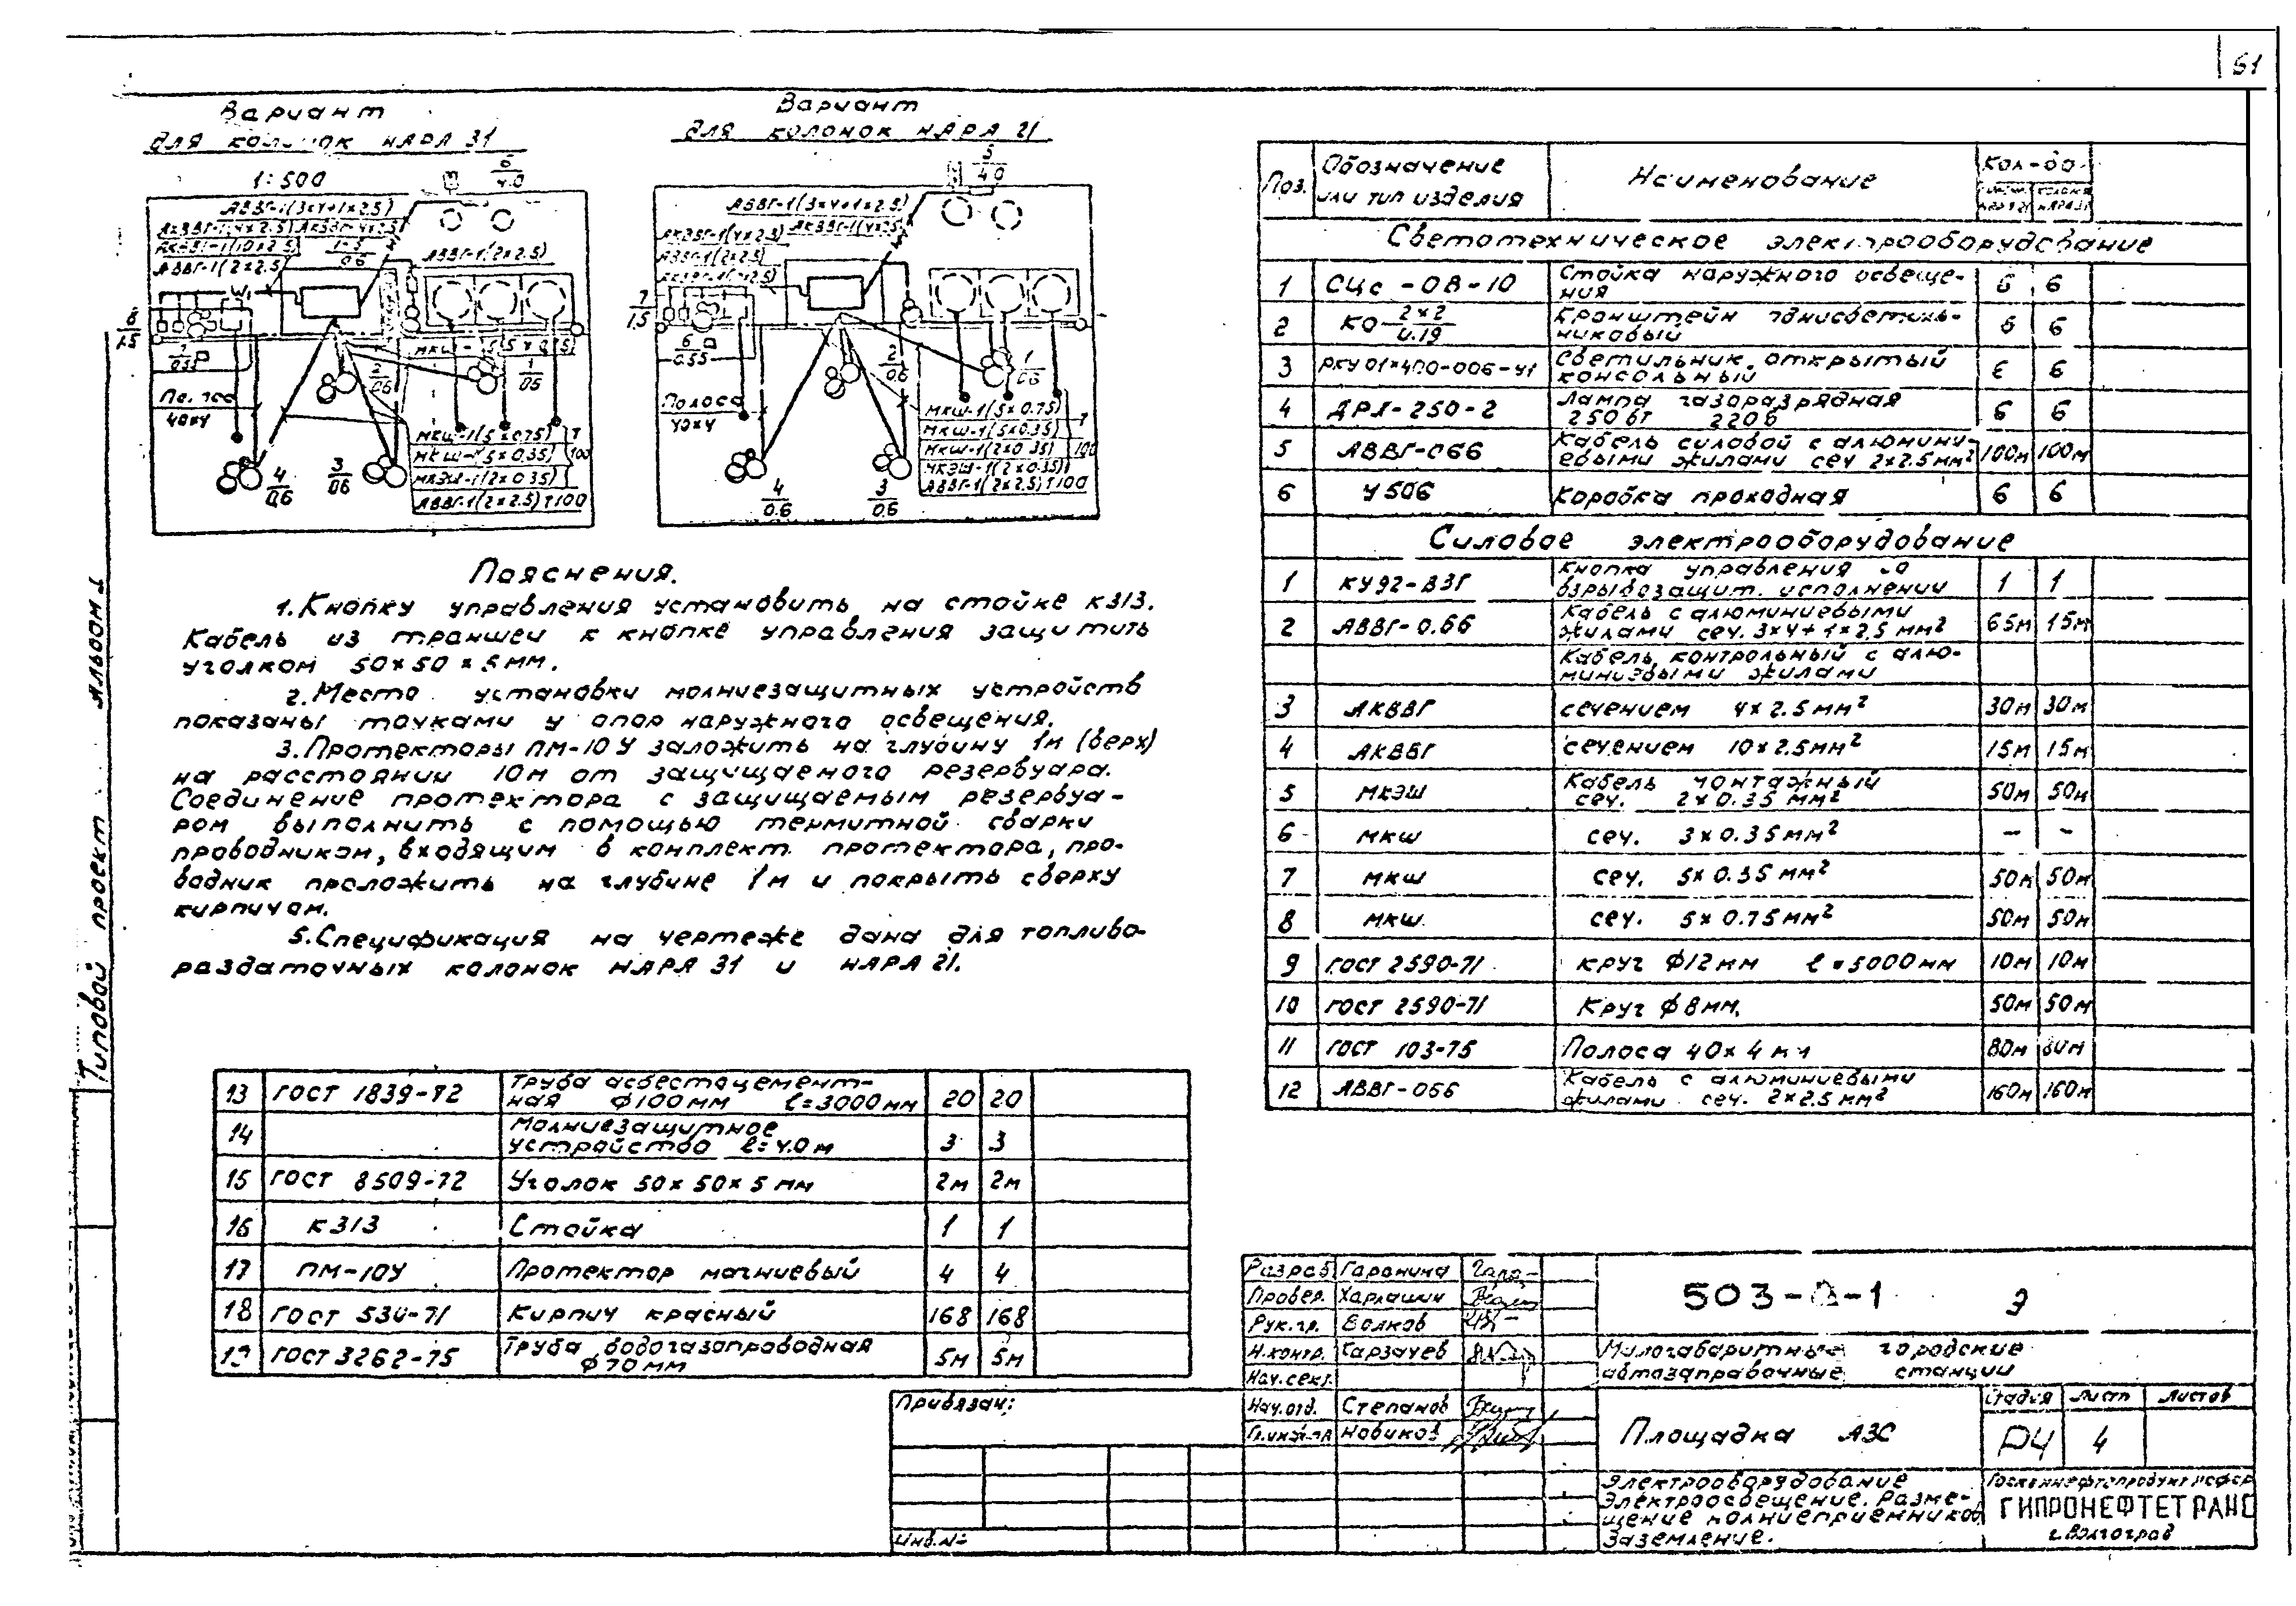 51
Вариант
для колонок НАРА 31
1:500
АВВГ-1(3×4+1×2.5)
АВВГ-1(2×2.5)
АВВГ-1(2×2.5)
40×4
МКШ-1(5×0.75)
МКШ-1(5×0.35)
МКЭШ-1(2×0.35)
АВВГ-1(2×2.5)Т100
4
0.6
3
0.6
Вариант
для колонок НАРА 21
5
4.0
АВВГ-1(3×4+1×2.5)
АКВВГ-1(4×2.5)
АВВГ-1(2×2.5)
7
1.5
6
0.55
2
0.6
1
0.6
Полоса
40×4
МКШ-1(5×0.75)
МКШ-1(5×0.35)
МКШ-1(2×0.35)
МКЭШ-1(2×0.35)
АВВГ-1(2×2.5)Т100
Т
100
4
0.6
3
0.6
Пояснения.
1. Кнопку управления установить на стойке К313.
Кабель из траншеи к кнопке управления защитить
уголком 50×50×5мм.
2. Место установки молниезащитных устройств
показаны точками у опор наружного освещения.
3. Протекторы ПМ-10У заложить на глубину 1м (верх)
на расстоянии 10м от защищаемого резервуара.
Соединение протектора с защищаемым резервуа-
ром выполнить с помощью термитной сварки
проводником, входящим в комплект протектора, про-
водник проложить на глубине 1м и покрыть сверху
кирпичом.
5. Спецификация на чертеже дана для топливо-
раздаточных колонок НАРА 31 и НАРА 21.
Поз. Обозначение или тип изделия Наименование Кол-во
Светотехническое электрооборудование
1 СЦс-0В-10 Стойка наружного освеще-
ния 6 6
2 КО 2×2 Кронштейн
никовый 6 6
3 РКУ01×400-006-У1 Светильник открытый
консольный 6 6
4 ДРЛ-250-2 Лампа газоразрядная
250Вт 220В 6 6
5 АВВГ-066 Кабель силовой с алюмини-
евыми жилами сеч 2×2.5мм² 100м 100м
6 У506 Коробка проходная 6 6
Силовое электрооборудование
1 КУ92-ВЗГ Кнопка управления во
взрывозащит. исполнении 1 1
2 АВВГ-0.66 Кабель с алюминиевыми
жилами сеч. 3×4+1×2.5мм² 65м 15м
Кабель контрольный с алю-
миниевыми жилами
3 АКВВГ сечением 4×2.5мм² 30м 30м
4 АКВВГ сечением 10×2.5мм² 15м 15м
5 МКЭШ Кабель монтажный
сеч. 2×0.35 мм² 50м 50м
6 МКШ сеч. 3×0.35мм² - -
7 МКШ сеч. 5×0.35мм² 50м 50м
8 МКШ сеч. 5×0.75мм² 50м 50м
9 ГОСТ 2590-71 Круг Ф12мм ℓ=5000мм 10м 10м
10 ГОСТ 2590-71 Круг Ф8мм. 50м 50м
11 ГОСТ 103-75 Полоса 40×4мм 80м 80м
12 АВВГ-066 Кабель с алюминиевыми
жилами сеч. 2×2.5мм² 160м 160м
13 ГОСТ 1839-72 Труба асбестоцемент-
ная Ф100мм ℓ=3000мм 20 20
14 Молниезащитное
устройство ℓ=4.0м 3 3
15 ГОСТ 8509-72 Уголок 50×50×5мм 2м 2м
16 К313 Стойка 1 1
17 ПМ-10У Протектор магниевый 4 4
18 ГОСТ 530-71 Кирпич красный 168 168
19 ГОСТ 3262-75 Труба водогазопроводная
Ф70мм 5м 5м
Привязан:
Инв.№
Разраб Гаранина
Провер. Харлашин
Рук.гр. Волков
Н.контр. Карзачев
Нач.сект.
Нач.отд. Степанов
Гл.инж.пр Новиков
503- -1 Э
Малогабаритные городские
автозаправочные станции
Площадка АЗС
Стадия Лист Листов
РЧ 4
Электрооборудование
Электроосвещение. Разме-
щение молниеприемников
Заземление.
Госкомнефтепродукт РСФСР
ГИПРОНЕФТЕТРАНС
г. Волгоград
Типовой проект Альбом 1